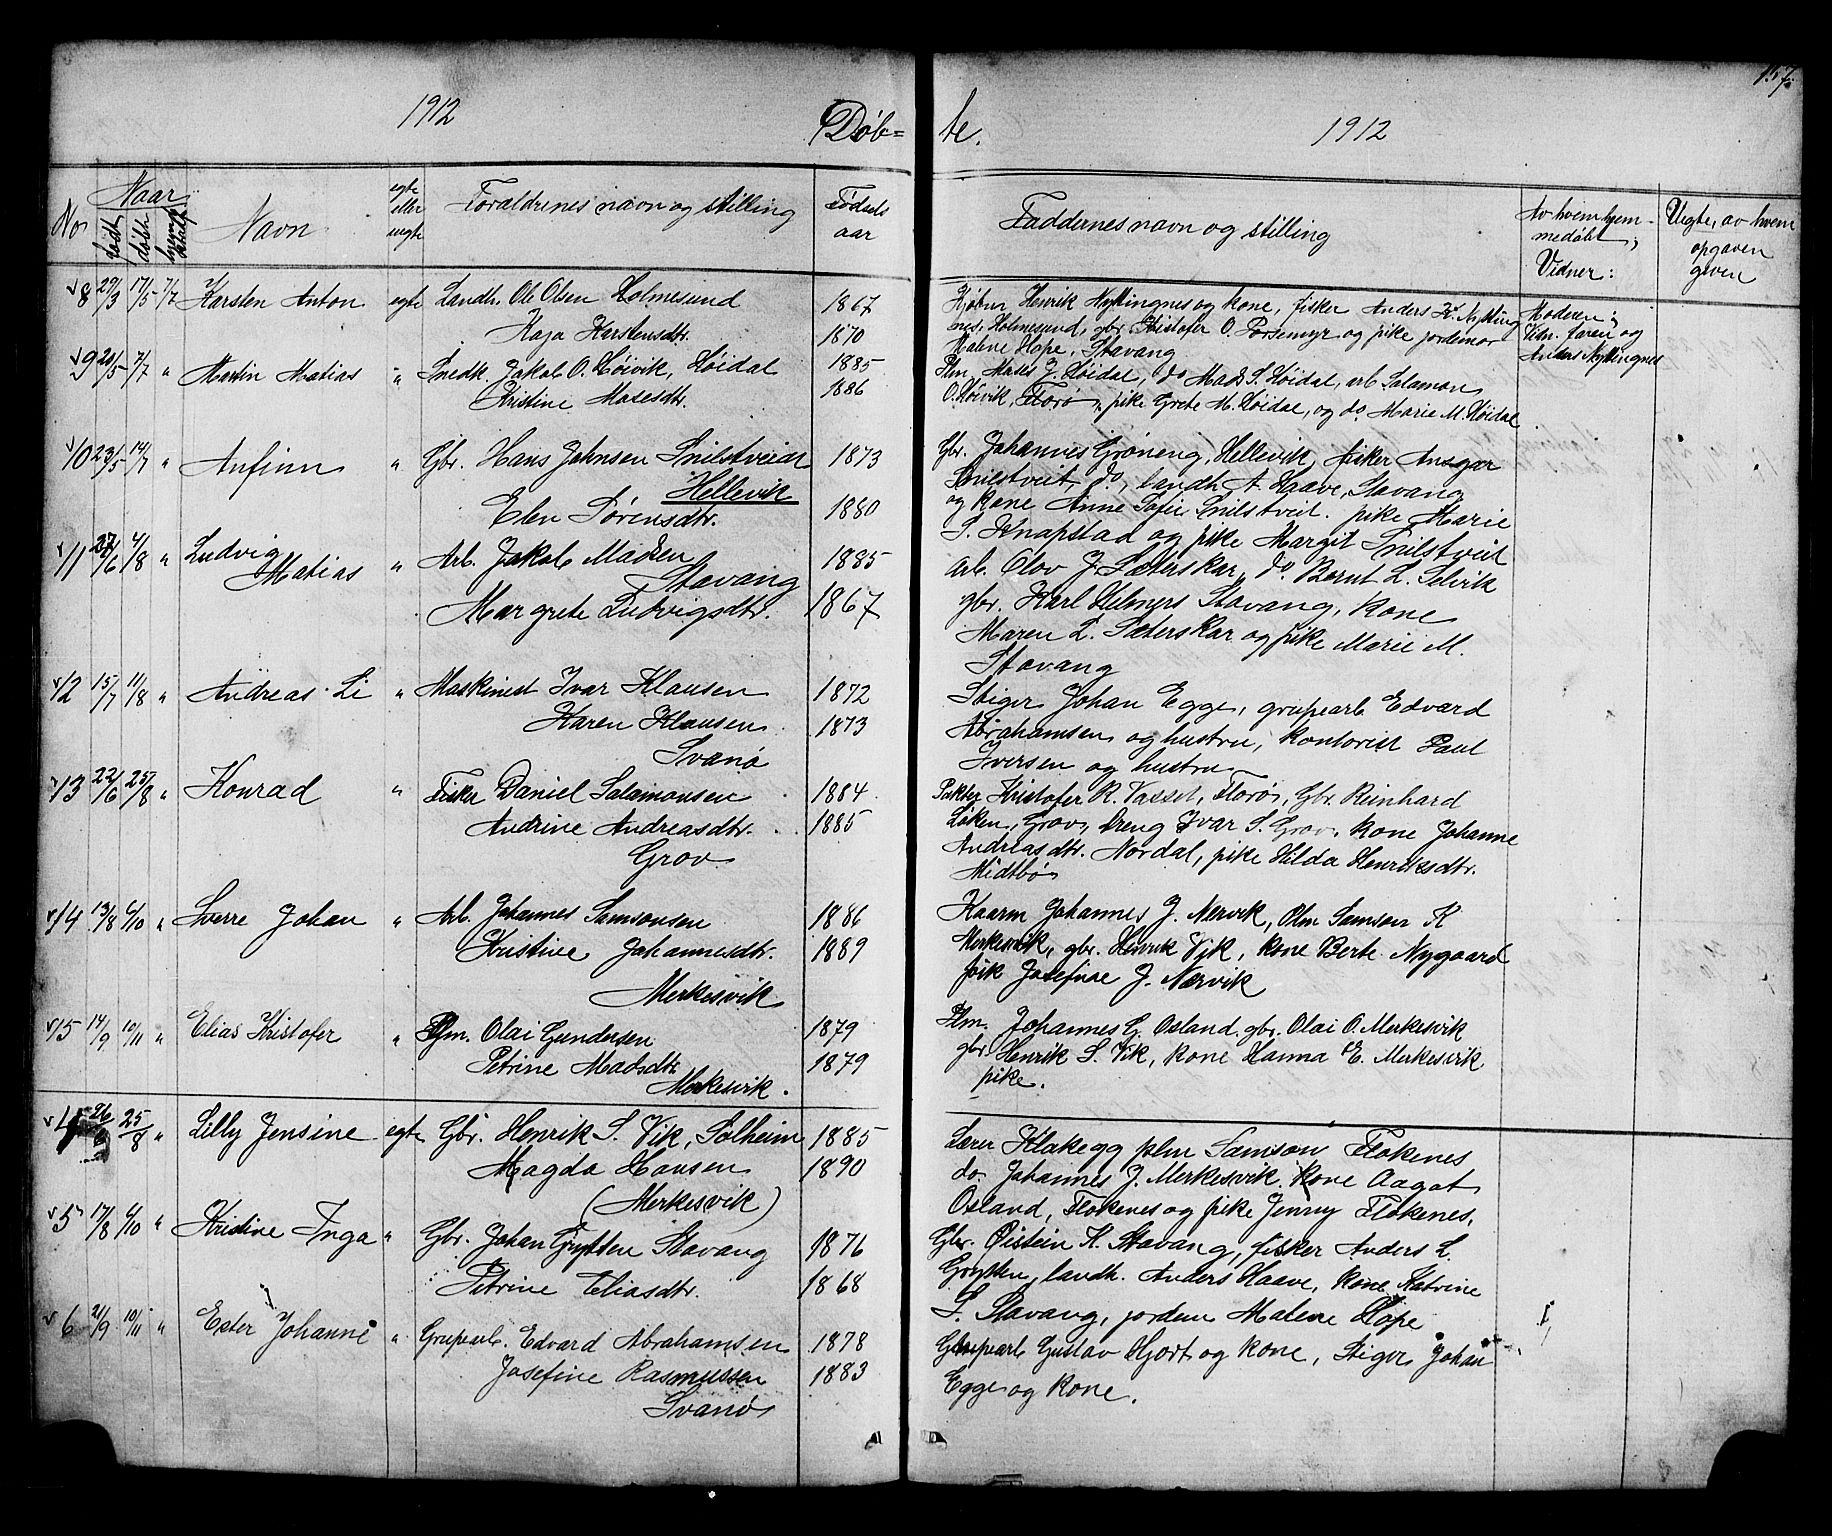 157.
1912 Døb= te. 1912
No Naar Navn egte eller uegte Forældrenes navn og stilling Fødsels aar Faddernes navn og stilling Av hvem hjem- medøbt, Vidner: Uegte, av hvem opgaven given
født døbt
8 29/3 17/5 7/7 Karsten Anton egte Landh. Ole Olsen Holmesund 1867 Henrik Nyttingnes og kone, fisker Anders K. Nytting Moderen;
Kaja Karstensdtr. 1870 nes, Holmesund, gbr. Kristofer O. Porsemyr og pike jordemor Vidn. faren og
Malene Hope, Stavang Anders Nyttingnes
9 20/5 7/7 " Martin Matias " Snedk. Jakob O. Høivik, Høidal 1885 Plm. Moses J. Høidal, do Mads S. Høidal, arb Salamon
Kristine Mosesdtr. 1886 O. Høivik, Florø, pike Grete M. Høidal, og do Marie M. Høidal
10 23/5 14/7 " Anfinn " Gbr. Hans Johnsen Snilstveit 1873 Gbr. Johannes Grøneng, Hellevik, fisker Ansgar
Hellevik Snilstveit, do, landh. A. Haave, Stavang
Elen Sørensdtr. 1880 og kone Anne Sofie Snilstveit. pike Marie
S. Knapstad og pike Margit Snilstveit
11 27/6 4/8 " Ludvig Matias " Arb. Jakob Madsen 1885 arb. Olov J. Sæterskar, do. Bernt L. Selvik
Stavang gbr. Karl Hilmers Stavang, kone
Margrete Ludvigsdtr. 1867 Maren L. Sæterskar og pike Marie M.
Stavang
12 15/7 11/8 " Andreas Li " Maskinist Ivar Klausen 1872 Stiger Johan Egge, grupearb Edvard
Karen Klausen 1873 Abrahamsen og hustru, kontorist Paul
Svanø Iversen og hustru
13 22/6 25/8 " Konrad " Fisker Daniel Salamonsen 1884 Kristofer R. Vasset, Florø, Gbr. Reinhard
Andrine Andreasdtr. 1885 Løken, Grov, Dreng Ivar S. Grov, kone Johanne
Grov Andreasdtr. Nordal, pike Hilda Henriksdtr.
Midtbø
14 13/8 6/10 " Sverre Johan " Arb. Johannes Samsonsen 1886 Kaarm Johannes J. Nervik, Plm Samson K
Kristine Johannesdtr. 1889 Merkesvik, gbr. Henrik Vik, kone Berte Nygaard
Merkesvik pik Josefine J. Nærvik
15 14/9 10/11 " Elias Kristofer " Plm. Olai Gundersen 1879 Plm. Johannes G. Osland, gbr. Olai O. Merkesvik
Petrine Madsdtr 1879 gbr Henrik S. Vik, kone Hanna E. Merkesvik
Merkesvik. pike.
25/8 " Lilly Jensine egte Gbr. Henrik S. Vik, Solheim 1885 Lærer Klakegg plm Samson Flokenes
Magda Hansen 1890 do. Johannes J. Merkesvik. kone Aagot
(Merkesvik) Osland, Flokenes og pike Jenny Flokenes,
5 17/8 6/10 " Kristine Inga " Gbr. Johan Grytten Stavang 1876 Gbr. Øistein K. Stavang, fisker Anders L.
Petrine Eliasdtr. 1868 Grytten, landh. Anders Haave, kone Katrine
S. Stavang, jordem Malene Hope
6 21/9 10/11 " Ester Johanne " Grupearb. Edvard Abrahamsen 1878 Grupearb Gustav Hjort og kone, Stiger Johan
Josefine Rasmussen 1883 Egge og kone.
Svanø